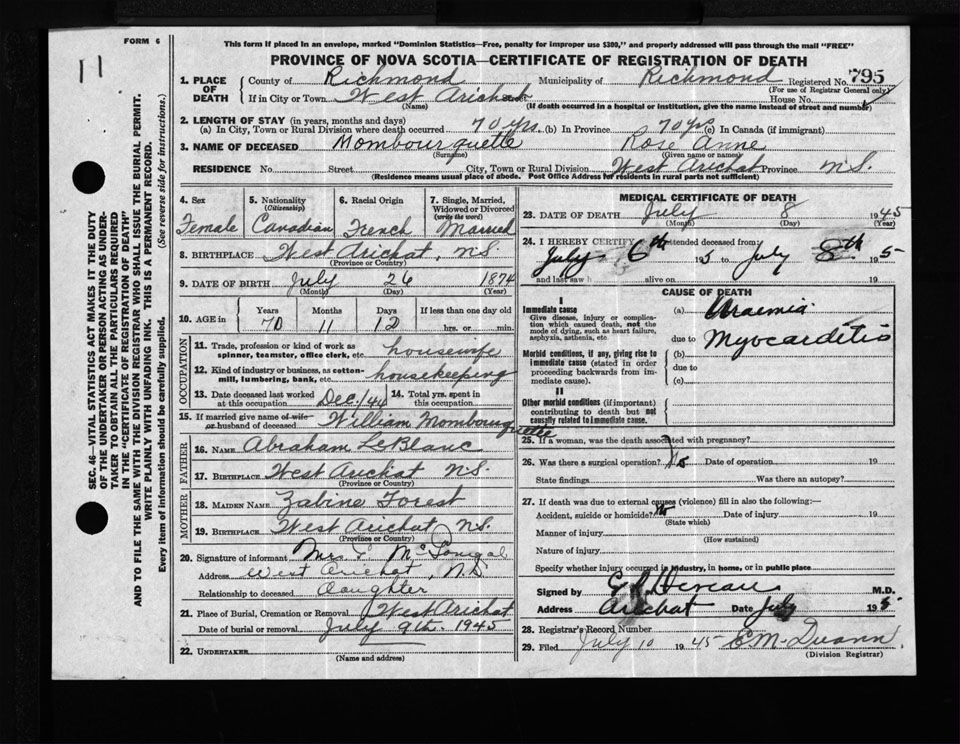 FORM 6
11
This form if placed in an envelope, marked "Dominion Statistics—Free, penalty for improper use $300," and properly addressed will pass through the mail "FREE"
PROVINCE OF NOVA SCOTIA—CERTIFICATE OF REGISTRATION OF DEATH
1. PLACE OF DEATH County of Richmond Municipality of Richmond Registered No. 795
(For use of Registrar General only)
If in City or Town West Arichat House No.
(Name) (If death occurred in a hospital or institution, give the name instead of street and number)
2. LENGTH OF STAY (in years, months and days)
(a) In City, Town or Rural Division where death occurred 70 yrs. (b) In Province 70 yrs (c) In Canada (if immigrant)
3. NAME OF DECEASED Mombourquette Rose Anne
(Surname) (Given name or names)
RESIDENCE No. Street City, Town or Rural Division West Arichat Province N.S.
(Residence means usual place of abode. Post Office Address for residents in rural parts not sufficient)
4. Sex Female
5. Nationality (Citizenship) Canadian
6. Racial Origin French
7. Single, Married, Widowed or Divorced (write the word) Married
8. BIRTHPLACE West Arichat, N.S.
(Province or Country)
9. DATE OF BIRTH July 26 1874
(Month) (Day) (Year)
10. AGE in Years Months Days If less than one day old
70 11 12 hrs. or min.
OCCUPATION
11. Trade, profession or kind of work as spinner, teamster, office clerk, etc. housewife
12. Kind of industry or business, as cotton-mill, lumbering, bank, etc. housekeeping
13. Date deceased last worked at this occupation Dec./44 14. Total yrs. spent in this occupation
15. If married give name of wife or husband of deceased William Mombourquette
FATHER
16. NAME Abraham LeBlanc
17. BIRTHPLACE West Arichat N.S.
(Province or Country)
MOTHER
18. MAIDEN NAME Zabine Forest
19. BIRTHPLACE West Arichat N.S.
(Province or Country)
20. Signature of informant Mrs
Address West Arichat, N.S
Relationship to deceased Daughter
21. Place of Burial, Cremation or Removal West Arichat
Date of burial or removal July 9th. 1945
22. UNDERTAKER
(Name and address)
MEDICAL CERTIFICATE OF DEATH
23. DATE OF DEATH July 8 1945
(Month) (Day) (Year)
24. I HEREBY CERTIFY attended deceased from
July 6th 5 to July 8th. 195
and last saw h alive on 19
CAUSE OF DEATH
I
Immediate cause
Give disease, injury or complication which caused death, not the mode of dying, such as heart failure, asphyxia, asthenia, etc
(a) Uraemia
due to Myocarditis
Morbid conditions, if any, giving rise to immediate cause (stated in order proceeding backwards from immediate cause).
(b)
due to
(c)
II
Other morbid conditions (if important) contributing to death but not causally related to immediate cause.
25. If a woman, was the death associated with pregnancy?
26. Was there a surgical operation? No Date of operation 19
State findings Was there an autopsy?
27. If death was due to external causes (violence) fill in also the following:—
Accident, suicide or homicide? No Date of injury 19
(State which)
Manner of injury
(How sustained)
Nature of injury
Specify whether injury occurred in industry, in home, or in public place
Signed by M.D.
Address Arichat Date July 195
28. Registrar's Record Number
29. Filed July 10 1945
(Division Registrar)
SEC. 46—VITAL STATISTICS ACT MAKES IT THE DUTY
OF THE UNDERTAKER OR PERSON ACTING AS UNDER-
TAKER TO OBTAIN ALL THE PARTICULARS REQUIRED
IN THE "CERTIFICATE OF REGISTRATION OF DEATH"
AND TO FILE THE SAME WITH THE DIVISION REGISTRAR WHO SHALL ISSUE THE BURIAL PERMIT.
WRITE PLAINLY WITH UNFADING INK. THIS IS A PERMANENT RECORD.
Every item of information should be carefully supplied. (See reverse side for instructions.)